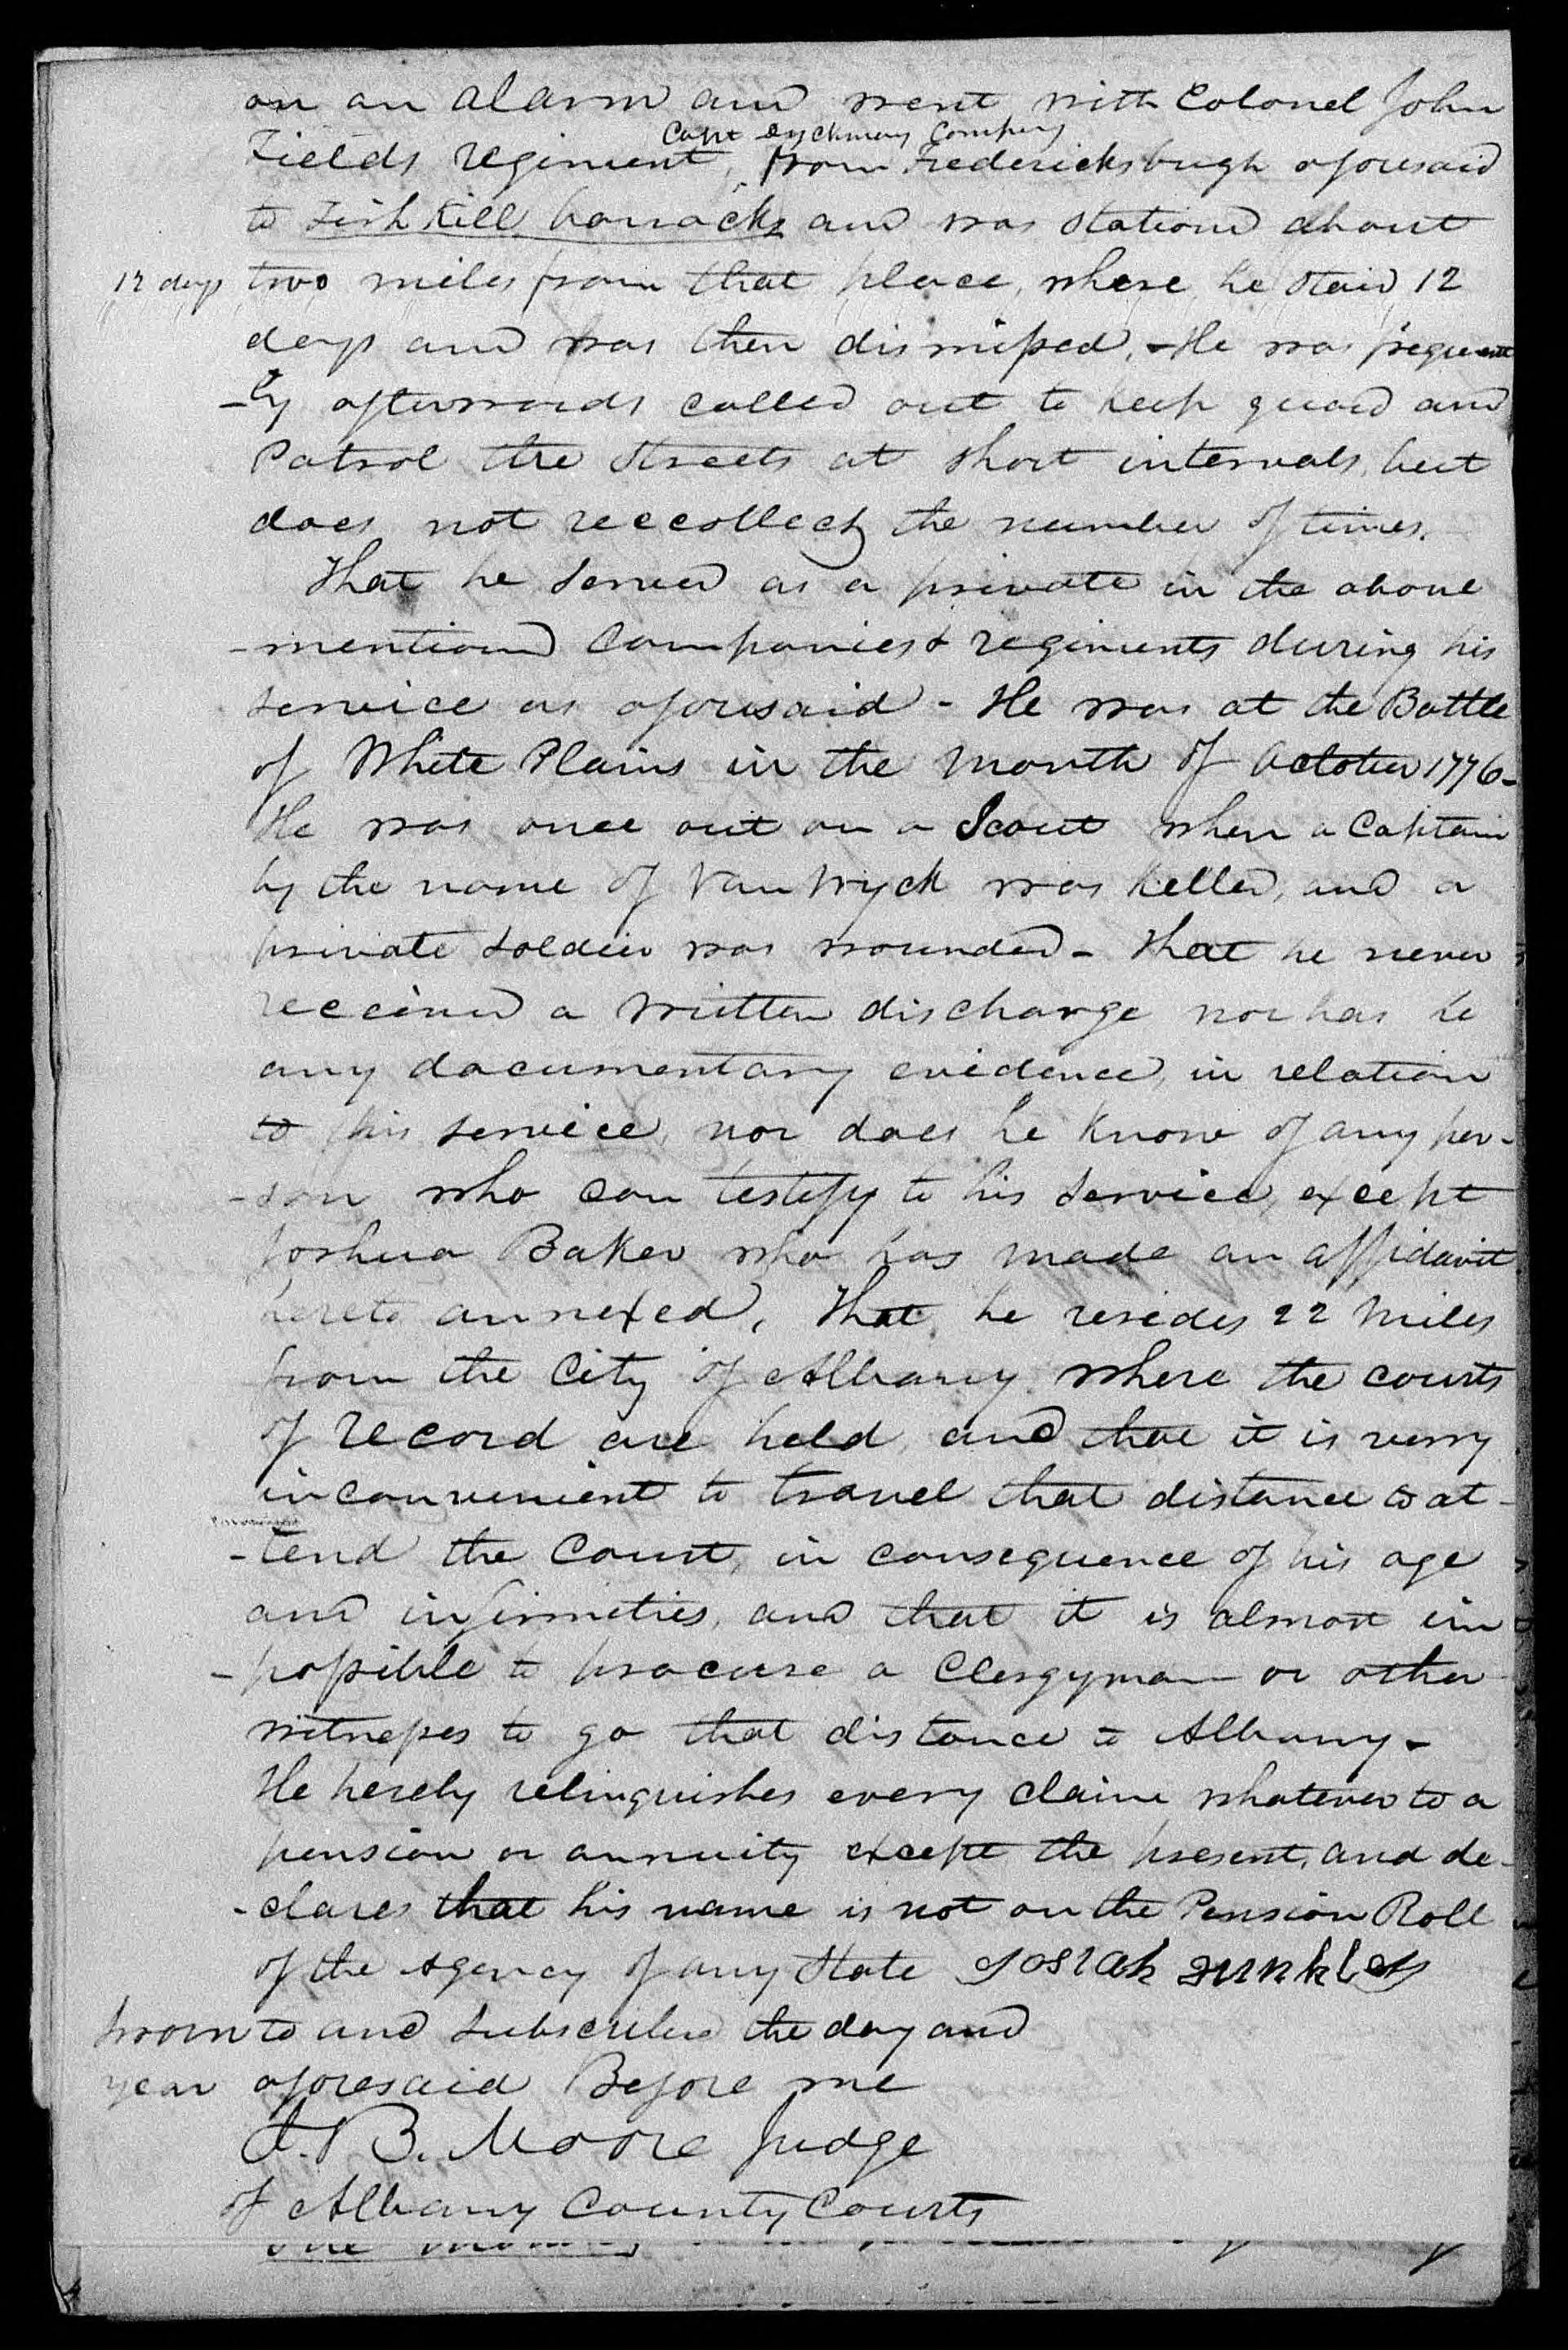 on an alarm and went with Colonel John
Capt Dyckmans Company
Fields regiment, from Fredericksburgh aforesaid
to Fish Kill barracks and was stationd about
12 days two miles from that place, where he staid 12
days and was then dismissed. - He was frequent
-ly afterwards called out to keep guard and
Patrol the Streets at short intervals, but
does not reccollect the number of times.
That he served as a private in the above
-mentiond Companies & regiments during his
service as aforesaid - He was at the Battle
of White Plains in the month of October 1776-
He was once out on a Scout when a Captain
by the name of Van Wyck was killed, and a
private soldier was wounded - that he never
received a written discharge nor has he
any documentary evidence, in relation
to his service, nor does he know of any per-
-son who can testify to his service, except
Joshua Baker who has made an affidavit
hereto annexed, That he resides 22 miles
from the City of Albany where the courts
of record are held and that it is verry
inconvenient to travel that distance to at-
-tend the Court, in consequence of his age
and infirmities, and that it is almost im
-possible to procure a Clergyman or other
witnesses to go that distance to Albany-
He hereby relinquishes every claim whatever to a
pension or annuity except the present, and de-
-clares that his name is not on the Pension Roll
of the Agency of any State Josiah
sworn to and subscribed the day and
year aforesaid Before me
J. B. Moore Judge
of Albany County Courts